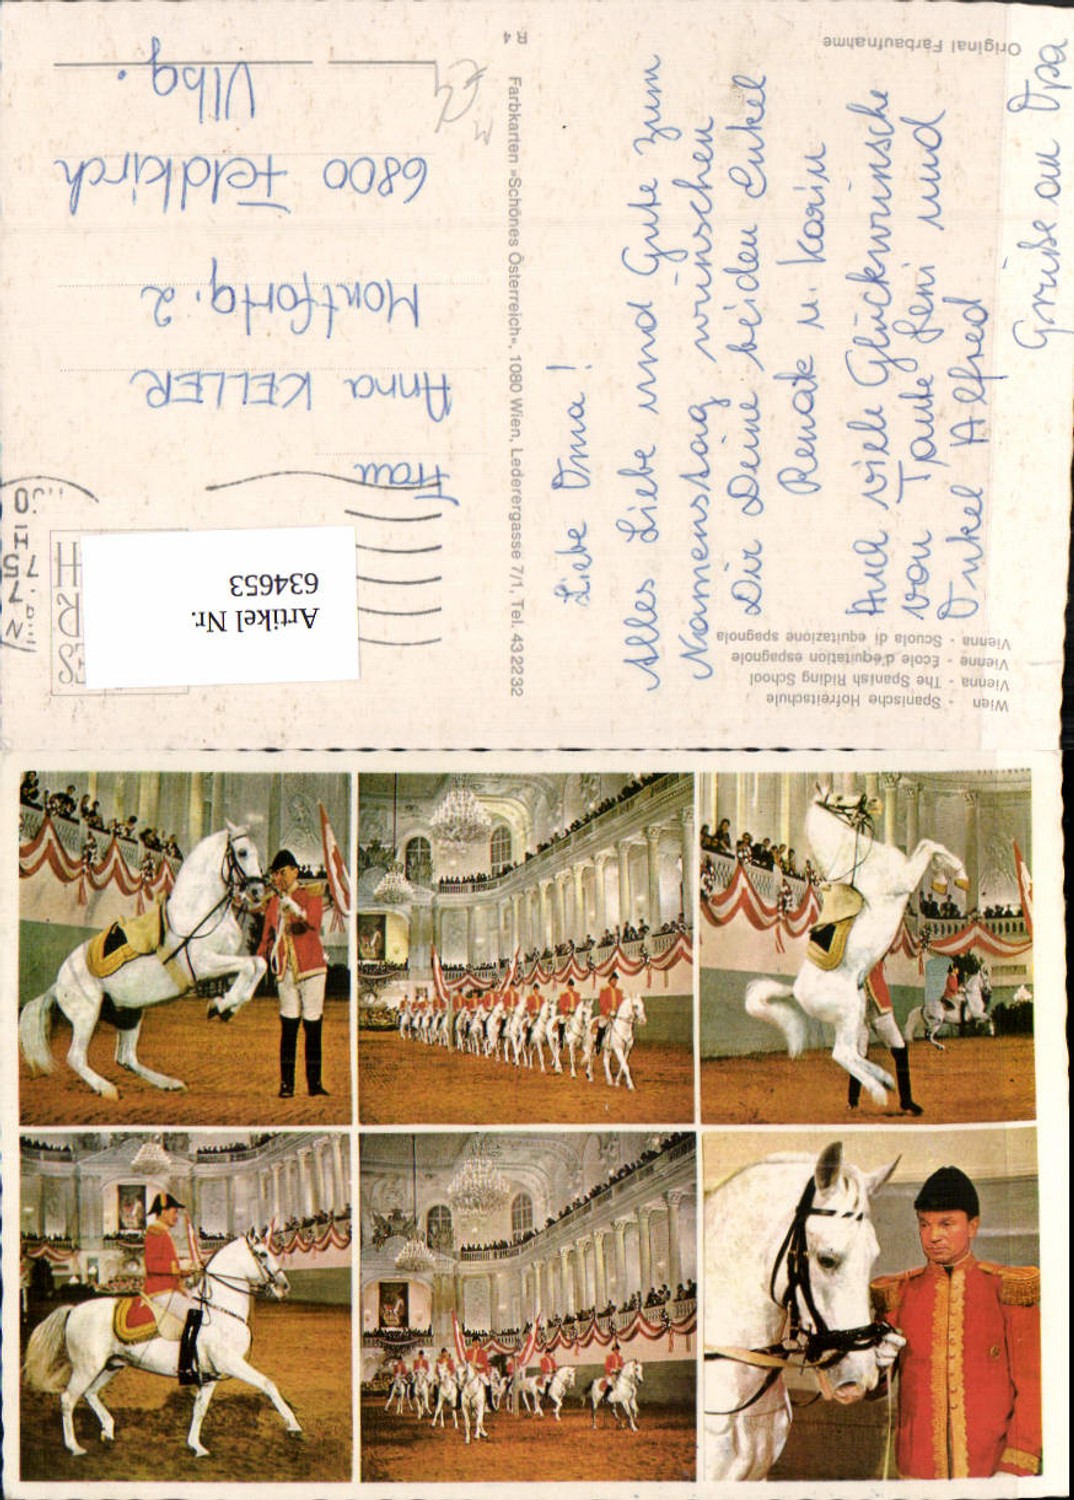 Wien - Spanische Hofreitschule
Vienna - The Spanish Riding School
Vienne - Ecole d'équitation espagnole
Vienna - Scuola di equitazione spagnola
Original Farbaufnahme
Liebe Oma!
Alles Liebe und Gute zum
Namenstag wünschen
Dir Deine beiden Enkel
Renate u. Karin
Auch viele Glückwünsche
von Tante Leni und
Onkel Alfred
Grüße an Opa
Farbkarten »Schönes Österreich«, 1080 Wien, Lederergasse 7/1, Tel. 43 22 32
R 4
Artikel Nr.
634653
7.75
Frau
Anna KELLER
Montfortg. 2
6800 Feldkirch
Vlbg.